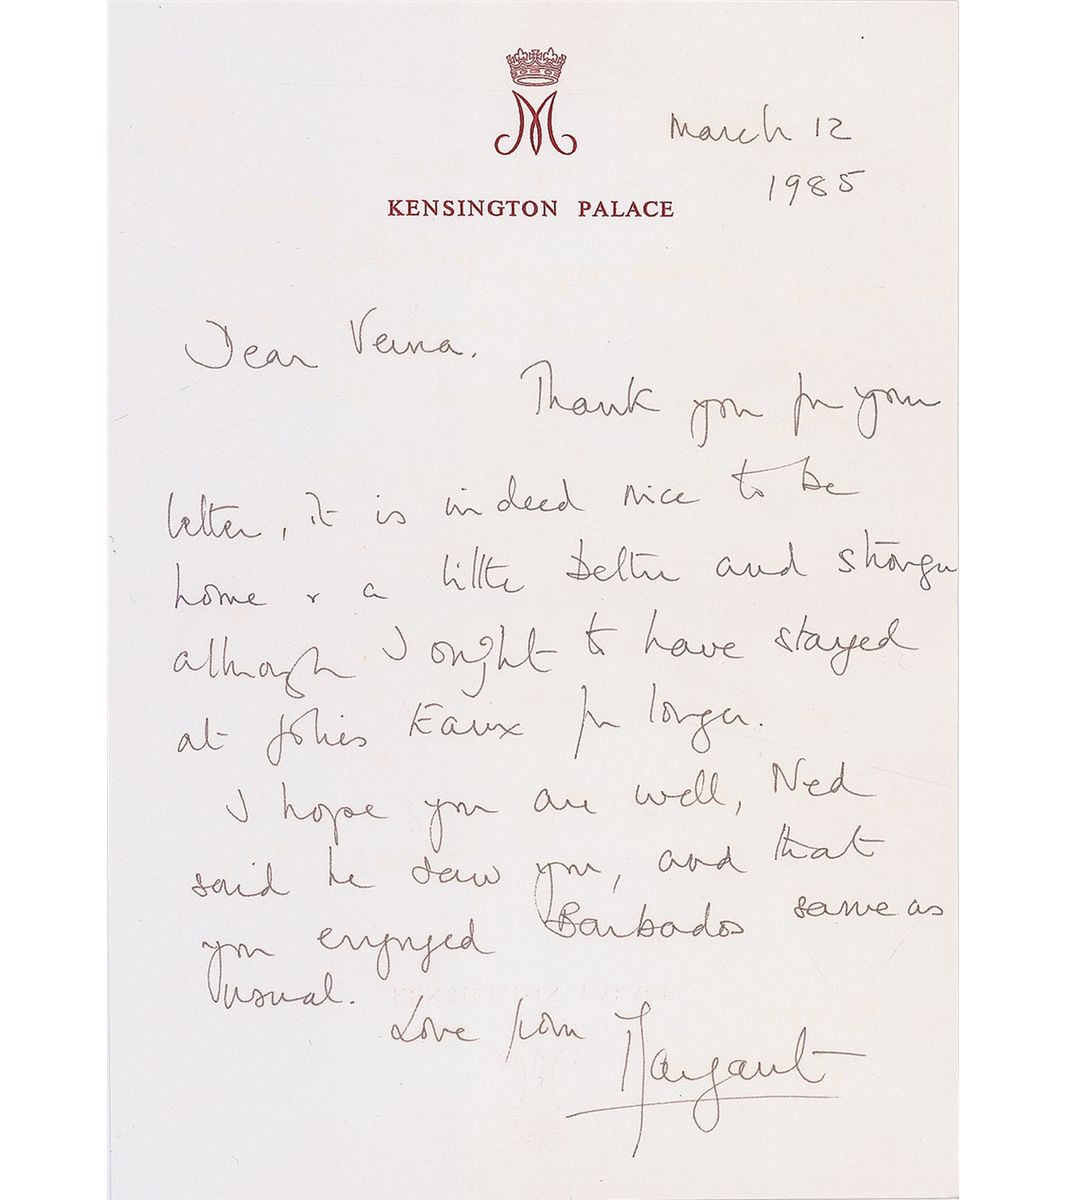 M
March 12
1985
KENSINGTON PALACE
Dear Verna.
Thank you for your
letter, it is indeed nice to be
home & a little better and stronger
although I ought to have stayed
at Jolies Eaux for longer.
I hope you are well, Ned
said he saw you, and that
you enjoyed Barbados same as
usual.
Love from
Margaret